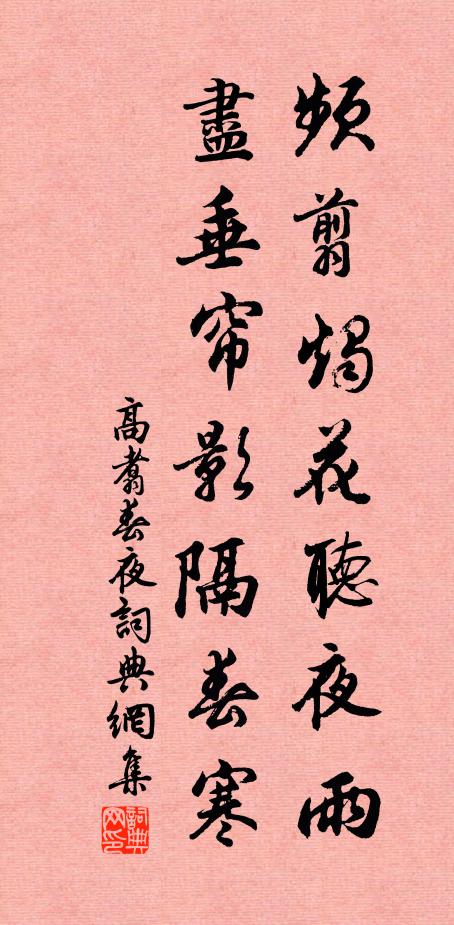 頻翦燭花聽夜雨
盡垂帘影隔春寒
高翥春夜詞典網集
詞典网印